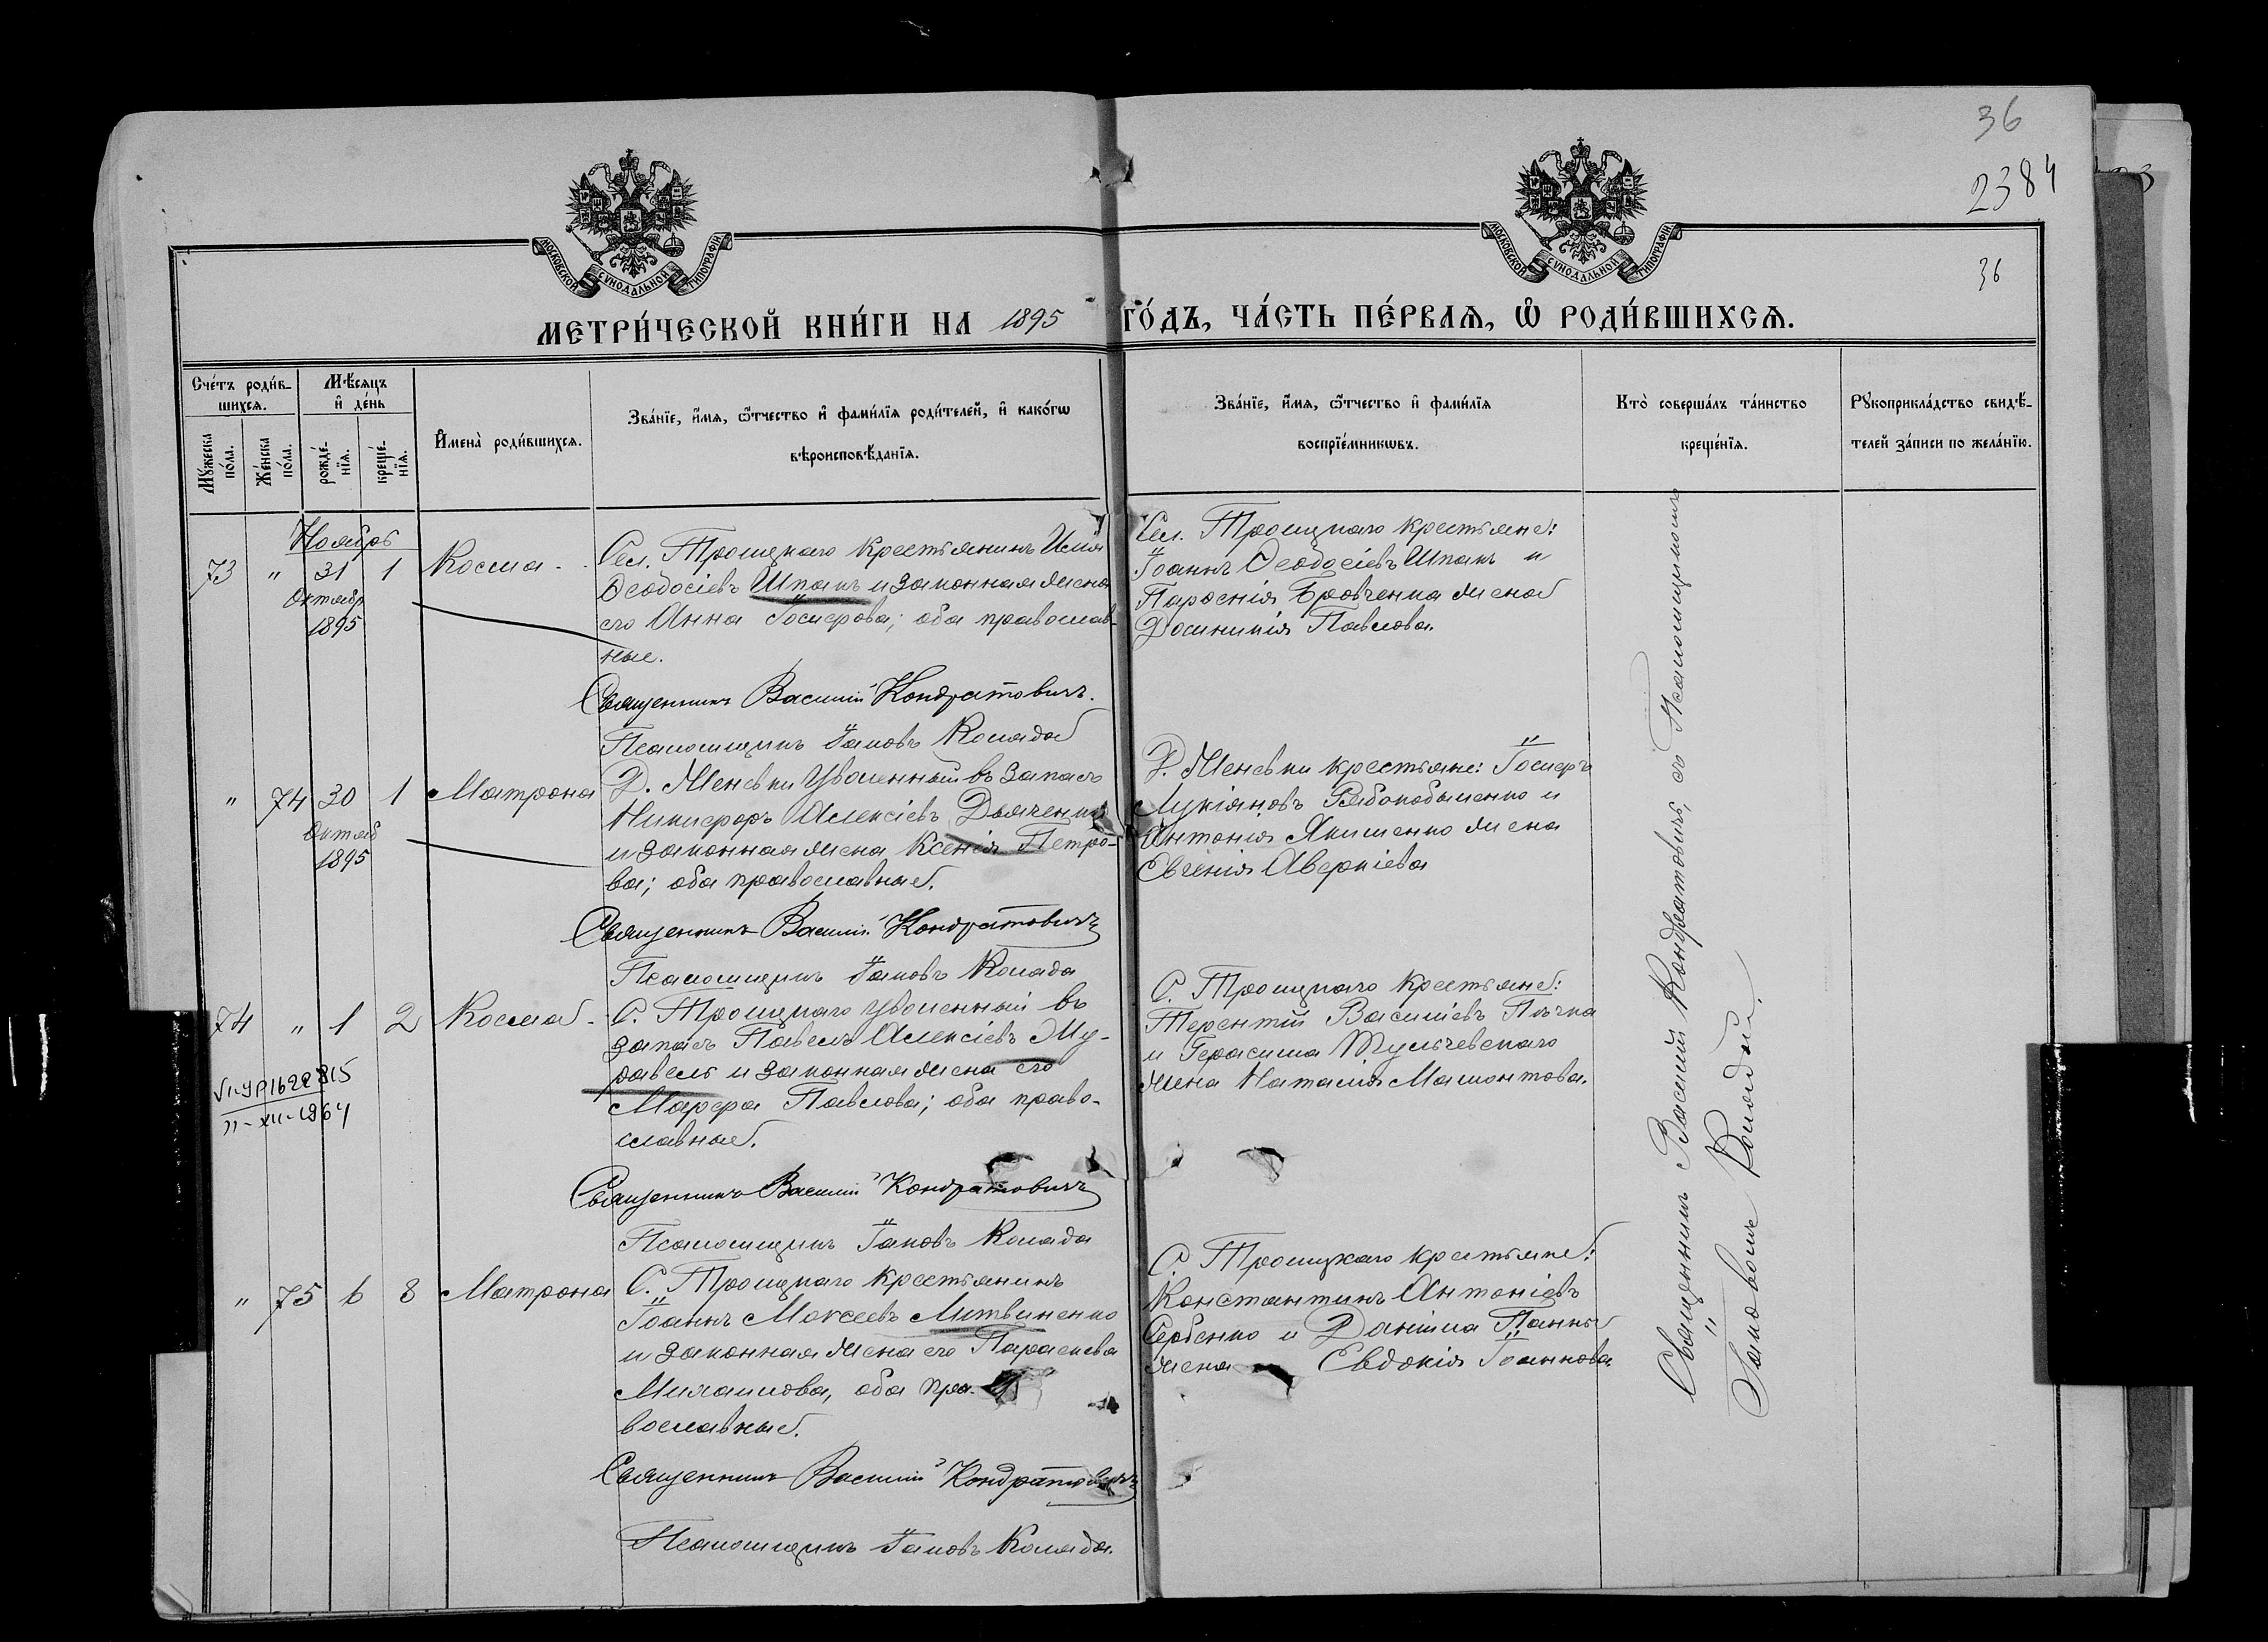 36
2384
36
МОСКОВСКОЙ СѴНОДАЛЬНОЙ ТИПОГРАФІИ
МОСКОВСКОЙ СѴНОДАЛЬНОЙ ТИПОГРАФІИ
МЕТРИ́ЧЕСКОЙ КНИ́ГИ НА 1895 ГО́ДЪ, ЧА́СТЬ ПЕ́РВАѦ, Ѡ РОДИ́ВШИХСѦ.
Сче́тъ роди́в-
шихсѧ.
Мѣ́сѧцъ
и҆ де́нь
Мꙋ́жеска
по́ла.
Же́нска
по́ла.
рожде́-
нїѧ.
креще́-
нїѧ.
И҆мена̀ роди́вшихсѧ.
Зва́нїе, и҆́мѧ, ѻ҆́тчество и҆ фами́лїѧ роди́телей, и҆ како́гѡ
вѣроисповѣ́данїѧ.
Зва́нїе, и҆́мѧ, ѻ҆́тчество и҆ фами́лїѧ
воспрїе́мникѡвъ.
Кто̀ соверша́лъ та́инство
креще́нїѧ.
Рꙋкоприкла́дство свидѣ́-
телей за́писи по жела́нїю.
Ноябрь
73 " 31 1 Косма
Октябр
1895
Сел. Троицкаго крестьянинъ
Ѳеодосіевъ Шпакъ и законная жена
его Анна Іосифова; оба православ-
ные.
Священникъ Василій Кондратовичъ.
Псаломщикъ Іаковъ Коляда
Сел. Троицкаго крестьяне:
Іоаннъ Ѳеодосіевъ Шпакъ и
Бровченка жена
Павлова.
" 74 30 1 Матрона
Октяб
1895
Д. Меневки уволенный въ запасъ
Никифоръ Алексіевъ Дьяченко
и законная жена Ксенія Петро-
ва; оба православные.
Священникъ Василій Кондратовичъ
Псаломщикъ Іаковъ Коляда
Д. Меневки крестьяне: Іосифъ
Лукіяновъ Рябокобыленко и
Антонія Якименко жена
Евгенія Аверкіева
74 " 1 2 Косма
11-XII-1964
С. Троицкаго уволенный въ
запасъ Павелъ Алексіевъ Жу-
равель и законная жена его
Марфа Павлова; оба право-
славные.
Священникъ Василій Кондратовичъ
Псаломщикъ Іаковъ Коляда
С. Троицкаго крестьяне:
Терентій Василіевъ
и Герасима Тульчевскаго
жена Наталія Мамонтова.
" 75 6 8 Матрона
С. Троицкаго крестьянинъ
Іоаннъ Моѵсеевъ Литвиненко
и законная жена его Параскева
Михаилова, оба пра-
вославные.
Священникъ Василій Кондратовичъ
Псаломщикъ Іаковъ Коляда.
С. Троицкаго крестьяне:
Константинъ Антоніевъ
Сербенко и Даніила Панны
жена Евдокія Іоаннова
Священникъ Василій Кондратовичъ, съ Псаломщикомъ
Іаковомъ Колядой.